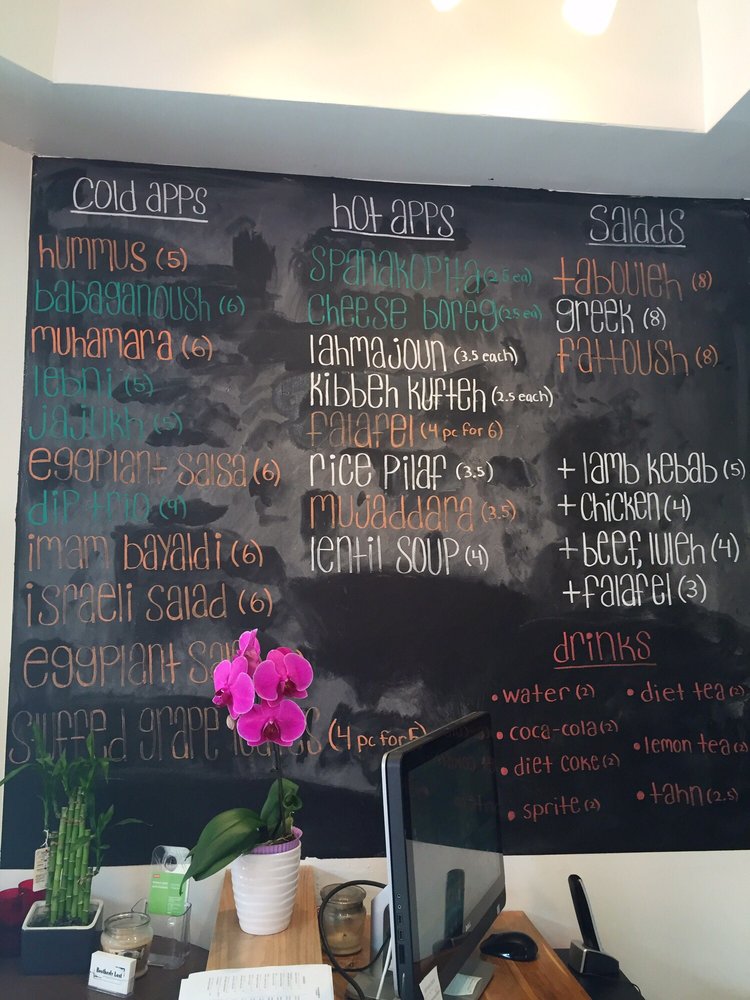 cold apps
hummus (5)
babaganoush (6)
muhamara (6)
lebni (5)
jajukh (5)
eggplant salsa (6)
dip trio (9)
imam bayaldi (6)
israeli salad (6)
eggplant
stuffed grape (4 pc for 5)
hot apps
spanakopita (2.5 ea)
cheese boreg (2.5 ea)
lahmajoun (3.5 each)
kibbeh kufteh (2.5 each)
falafel (4 pc for 6)
rice pilaf (3.5)
mujaddara (3.5)
lentil soup (4)
salads
tabouleh (8)
greek (8)
fattoush (8)
+ lamb kebab (5)
+ chicken (4)
+ beef, luleh (4)
+ falafel (3)
drinks
• water (2)
• coca-cola (2)
• diet coke (2)
• sprite (2)
• diet tea (2)
• lemon tea (2)
• tahn (2.5)